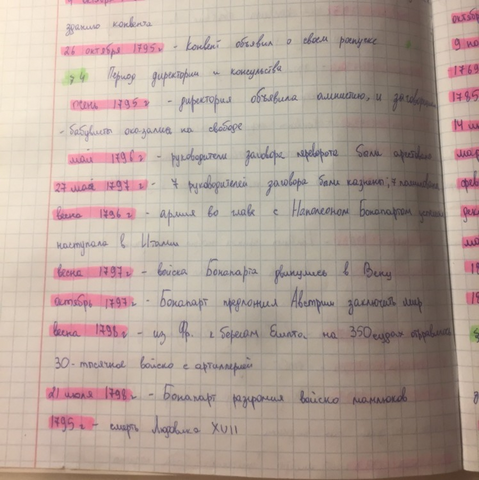 зданию конвента
26 октября 1795г - Конвент объявил о своем роспуске
Период директории и консульства
осень 1795 г - директория объявила амнистию, и заговорщики
- бабувисты оказались на свободе
май 1796 г - руководители заговора переворота были арестованы
27 мая 1797 г - 7 руководителей заговора были казнены, 7
весна 1796 г - армия во главе с Наполеоном Бонапартом успешно
наступала в Италии
весна 1797г - войска Бонапарта двинулись в Вену
октябрь 1797г - Бонапарт предложил Австрии заключить мир
весна 1798г - из Фр. к берегам Египта на 350 судах отправилось
30-тысячное войско с артиллерией
21 июля 1798г - Бонапарт разгромил войско мамлюков
1795 г - смерть Людовика XVII
октября
9 но
1769
1785
14 ию
мар
фев
дек